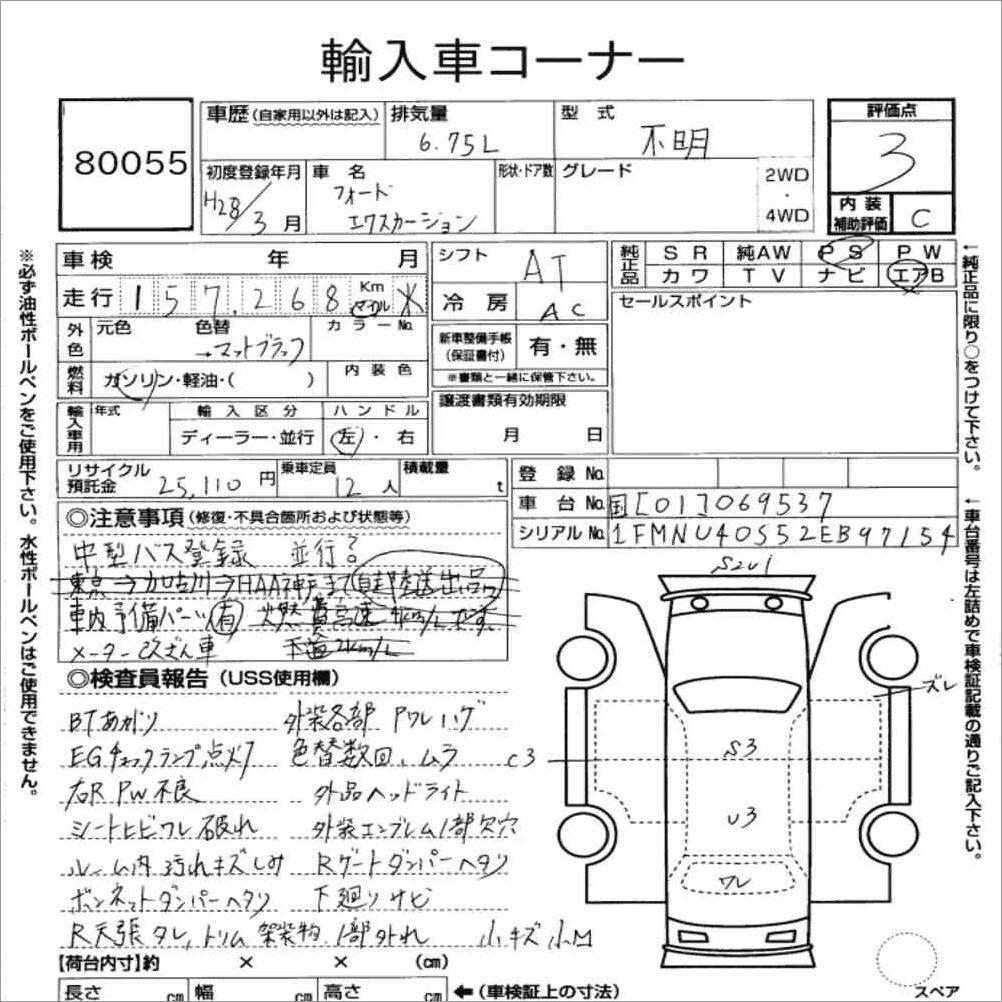 輸入車コーナー
80055
車歴(自家用以外は記入) 排気量 6.75L 型式 不明
評価点 3
初度登録年月 H28/3月 車名 フォード エクスカーション 形状・ドア数 グレード 2WD・4WD
内装補助評価 C
車検 年 月
シフト AT
純正品 SR 純AW PS PW
カワ TV ナビ エアB
走行 157,268 Km マイル ※
冷房 AC
セールスポイント
外色 元色 色替 →マットブラック カラーNo.
新車整備手帳(保証書付) 有・無
※書類と一緒に保管下さい。
燃料 ガソリン・軽油・( ) 内装色
譲渡書類有効期限 月 日
輸入車用 年式 輸入区分 ディーラー・並行 ハンドル 左・右
リサイクル預託金 25,110円 乗車定員 12人 積載量 t
登録No.
車台No. 国[01]069537
シリアルNo. 1FMNU40S52EB97154
◎注意事項(修復・不具合箇所および状態等)
中型バス登録 並行?
東京→加古川→HAA神戸まで自走陸送出品
車内予備パーツ有 燃費高速 4km/Lです。
メーター改ざん車 下道2km/L
◎検査員報告(USS使用欄)
BTあがり 外装各部 Pワレハゲ
EGチェックランプ点灯 色替数回、ムラ
右R PW不良 外品ヘッドライト
シートヒビワレ破れ 外装エンブレム1部欠穴
ルーム内汚れキズしみ Rゲートダンパーヘタリ
ボンネットダンパーヘタリ 下廻りサビ
R天張タレ、トリム架装物1部外れ 小キズ小凹
S2U1
ズレ
S3
C3
U3
ワレ
【荷台内寸】約 × × (cm)
長さ cm 幅 cm 高さ cm ←(車検証上の寸法)
スペア
※必ず油性ボールペンをご使用下さい。水性ボールペンはご使用できません。
←純正品に限り○をつけて下さい。
←車台番号は左詰めで車検証記載の通りご記入下さい。